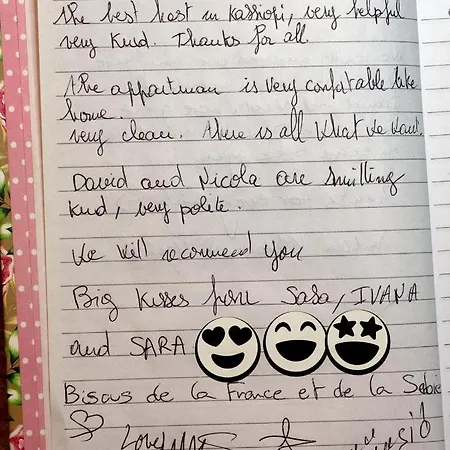 the best host in Kassiopi, very helpful
very kind. Thanks for all
the appartman is very confatable like
home.
very clean. there is all what we want.
David and Nicola are smilling
kind, very polite.
We will recommend you
Big kisses from Sasa, IVANA
and SARA
Bisous de la France et de la Sebie